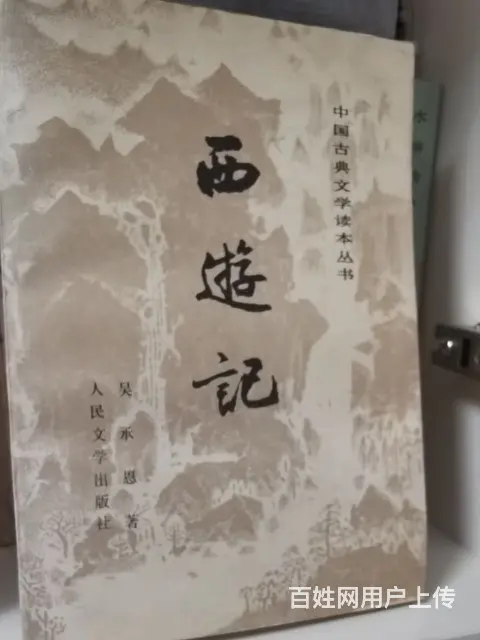 中国古典文学读本丛书
西遊記
吴承恩著
人民文学出版社
百姓网用户上传